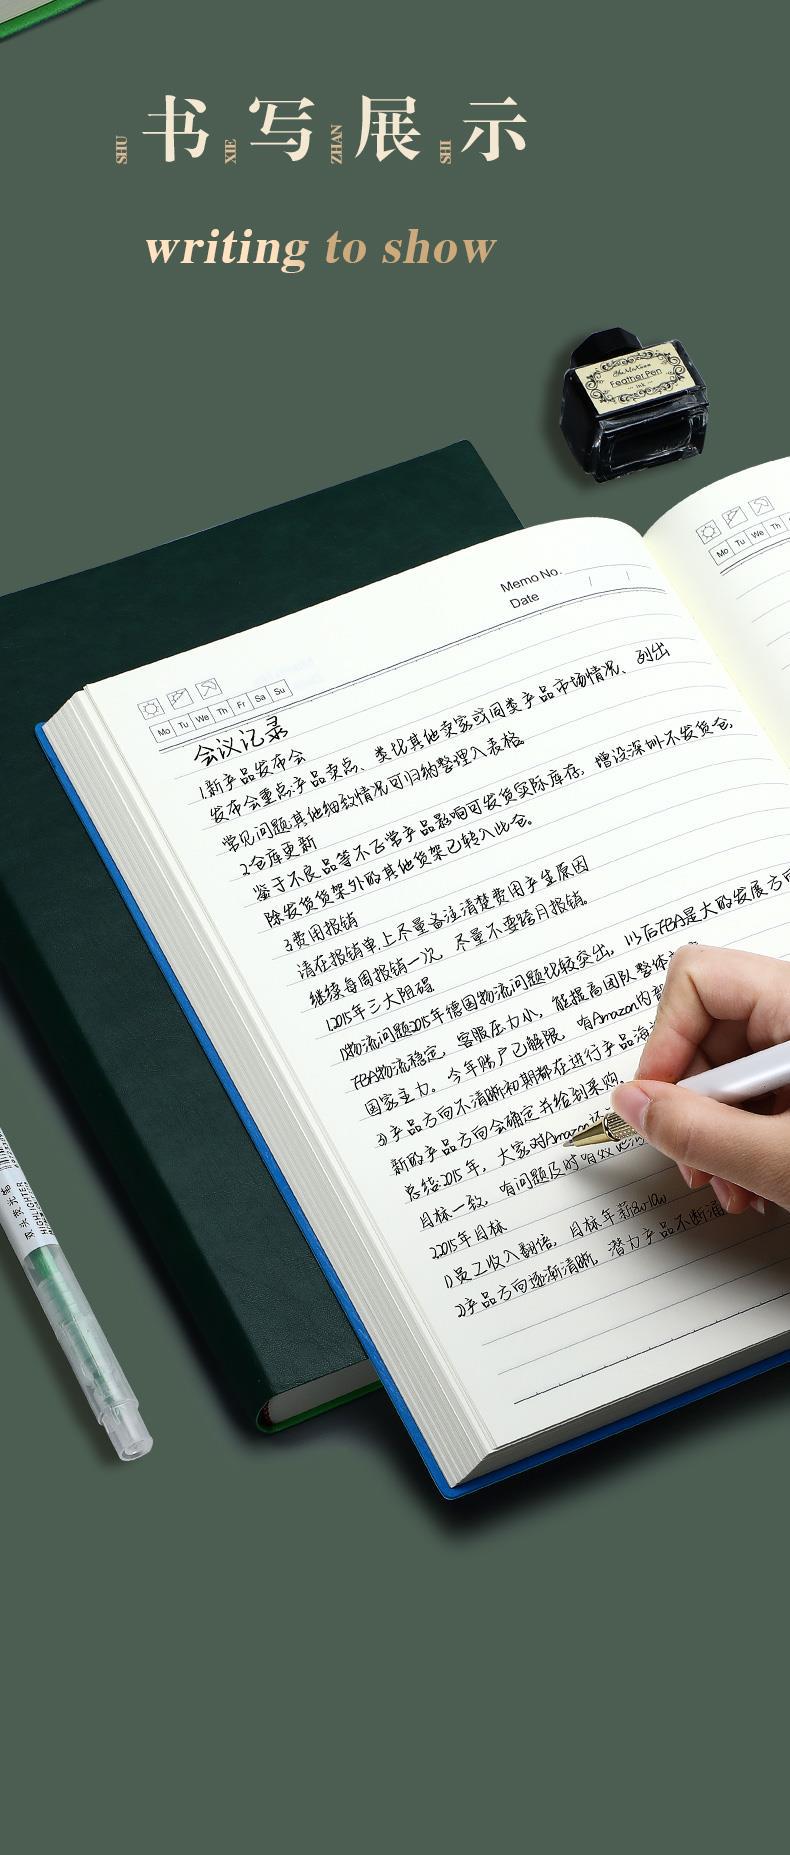 书写展示
SHU XIE ZHAN SHI
writing to show
Feather Pen
ink
Memo No.
Date
Mo Tu We Th Fr Sa Su
Mo Tu We Th
会议记录
1.新产品发布会
发布会重点:产品卖点、类比其他卖家或同类产品市场情况、列出
常见问题.其他细致情况可归纳整理入表格。
2.仓库更新
鉴于不良品等不正常产品影响可发货实际库存，增设深圳不发货仓，
除发货货架外的其他货架已转入此仓。
3.费用报销
请在报销单上尽量备注清楚费用产生原因
继续每周报销一次，尽量不要跨月报销。
1.2015年三大阻碍
1)物流问题2015年德国物流问题比较突出，以后FBA是大的发展方向
FBA物流稳定，客服压力小，能提高团队整体
国家主力。今年账户已解限，有Amazon内部
3)产品方向不清晰初期都在进行产品海
新的产品方向会确定并给到采购。
总结:2015年，大家对Amazon还
目标一致，有问题及时有效
2.2015年目标
1)员工收入翻倍，目标年薪8w-10w
2)产品方向逐渐清晰，潜力产品不断涌
双头荧光笔
HIGHLIGHTER